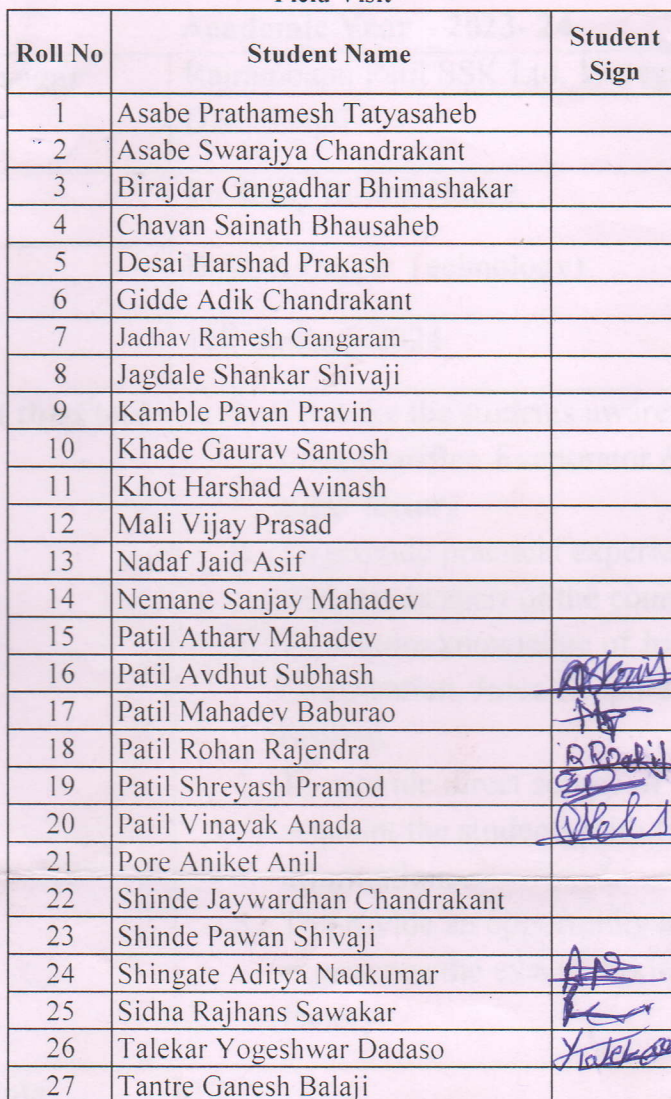 Field Visit
Roll No Student Name Student Sign
1 Asabe Prathamesh Tatyasaheb
2 Asabe Swarajya Chandrakant
3 Birajdar Gangadhar Bhimashakar
4 Chavan Sainath Bhausaheb
5 Desai Harshad Prakash
6 Gidde Adik Chandrakant
7 Jadhav Ramesh Gangaram
8 Jagdale Shankar Shivaji
9 Kamble Pavan Pravin
10 Khade Gaurav Santosh
11 Khot Harshad Avinash
12 Mali Vijay Prasad
13 Nadaf Jaid Asif
14 Nemane Sanjay Mahadev
15 Patil Atharv Mahadev
16 Patil Avdhut Subhash
17 Patil Mahadev Baburao
18 Patil Rohan Rajendra
19 Patil Shreyash Pramod
20 Patil Vinayak Anada
21 Pore Aniket Anil
22 Shinde Jaywardhan Chandrakant
23 Shinde Pawan Shivaji
24 Shingate Aditya Nadkumar
25 Sidha Rajhans Sawakar
26 Talekar Yogeshwar Dadaso
27 Tantre Ganesh Balaji